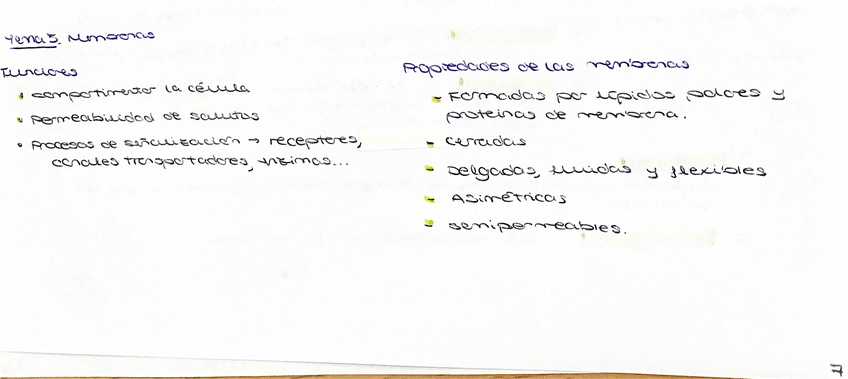 Tema 5. Membranas
Funciones
• compartimentar la célula
• Permeabilidad de solutos
• Procesos de señalización → receptores,
canales transportadores, enzimas...
Propiedades de las membranas
- Formadas por lípidos polares y
proteínas de membrana.
- cerradas
- Delgadas, fluidas y flexibles
- Asimétricas
- semipermeables.
7